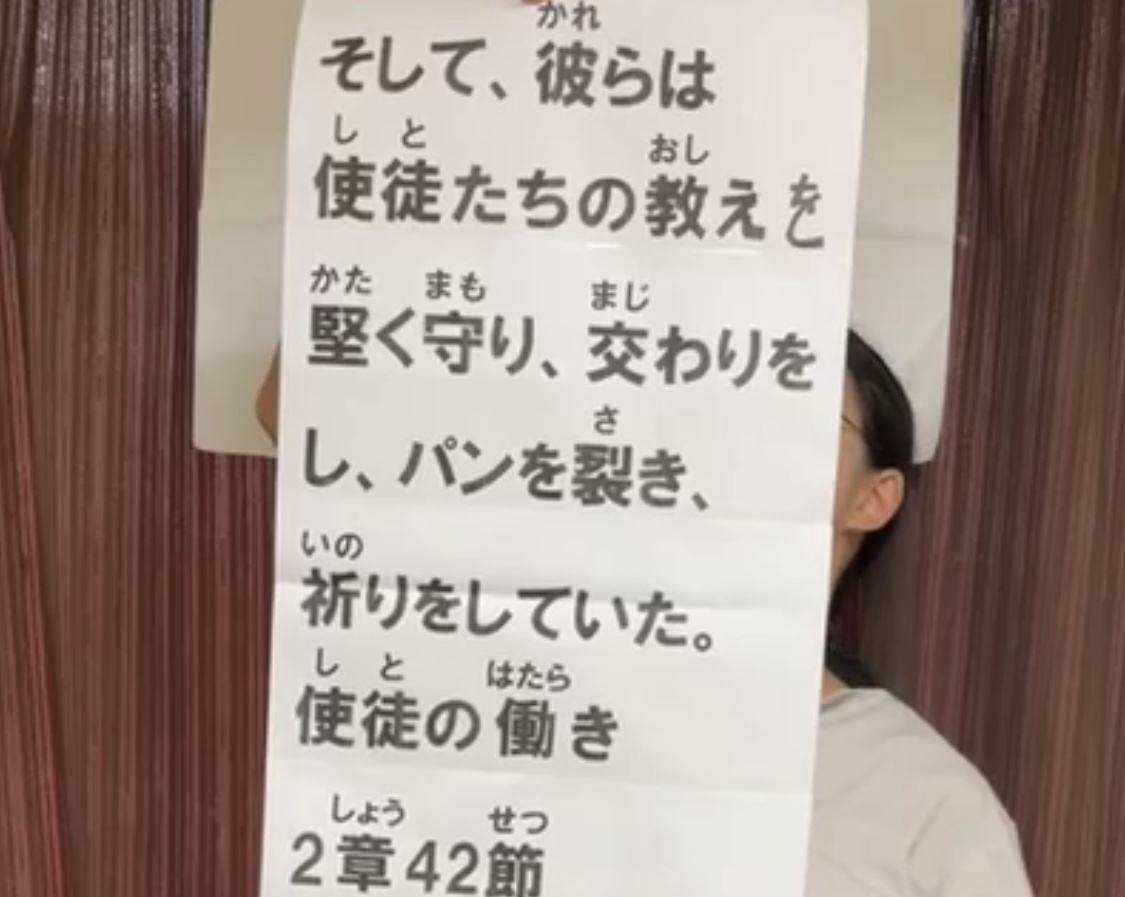 かれ
そして、彼らは
しと おし
使徒たちの教えを
かた まも まじ
堅く守り、交わりを
さ
し、パンを裂き、
いの
祈りをしていた。
しと はたら
使徒の働き
しょう せつ
2章42節